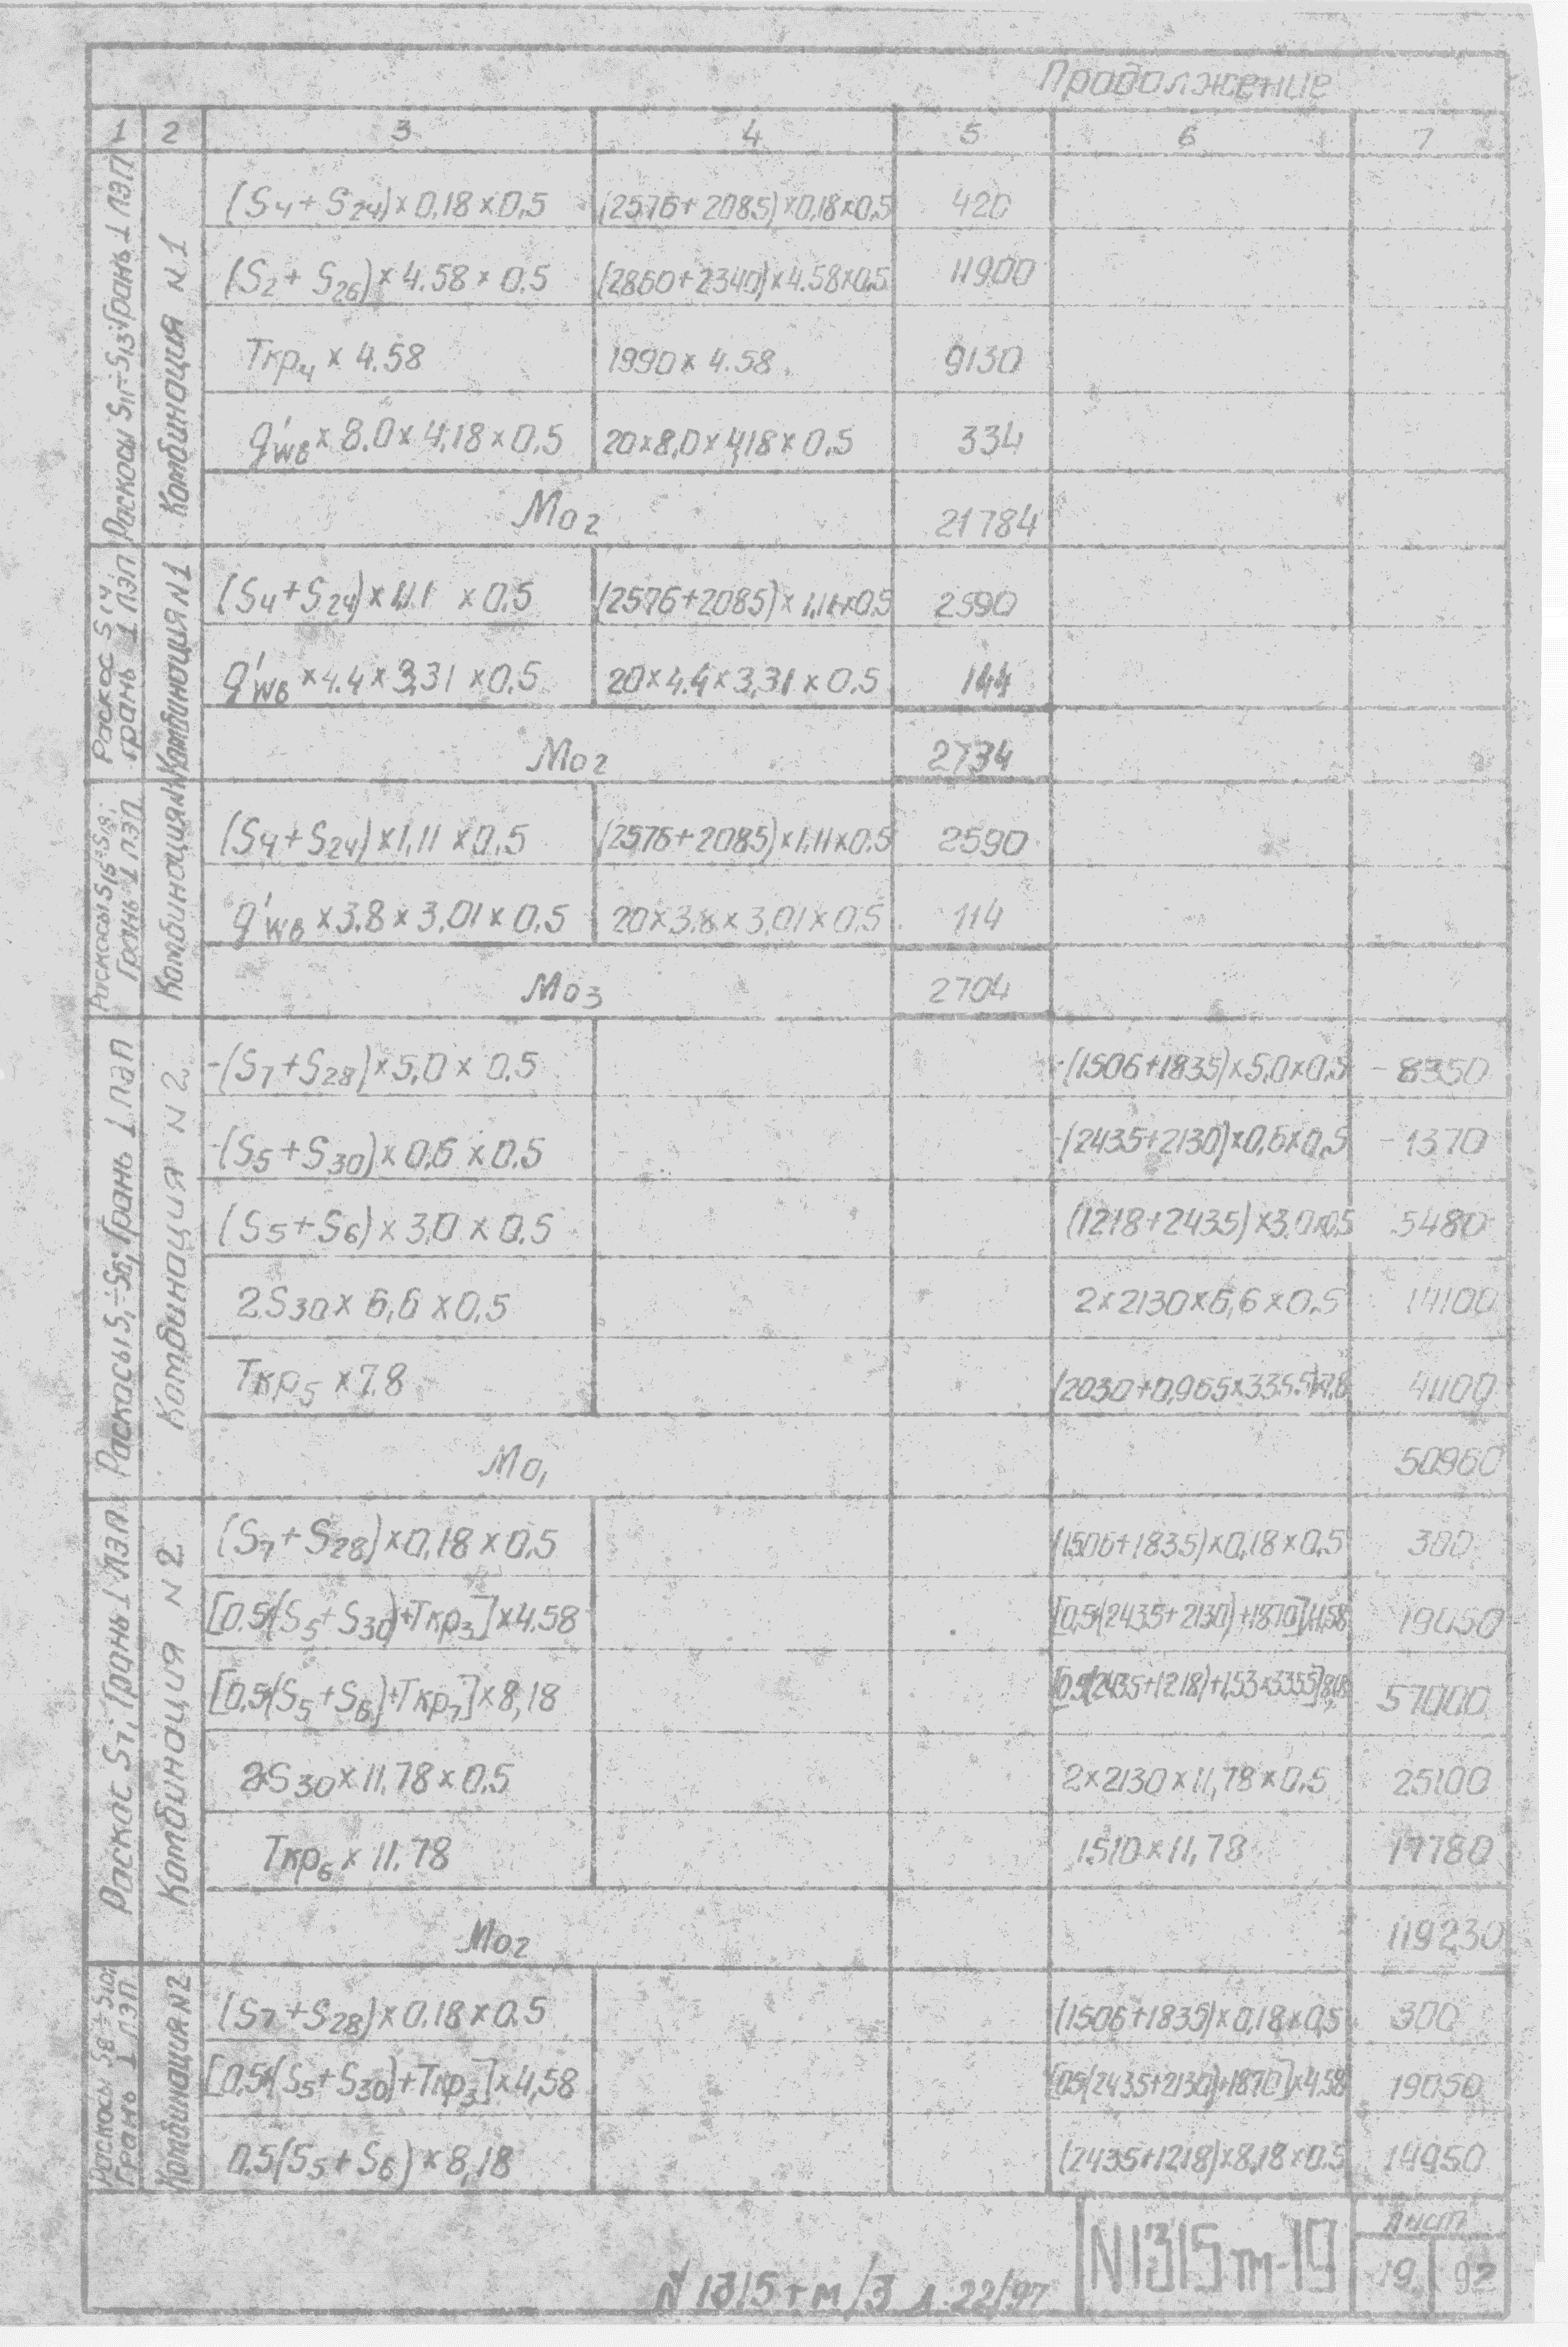 Продолжение
1 2 3 4 5 6 7
Раскосы S11÷S13; Грань ⊥ ЛЭП
Комбинация N1
(S4+S24)×0,18×0,5 (2576+2085)×0,18×0,5 420
(S2+S26)×4.58×0.5 (2860+2340)×4.58×0,5 11900
Ткр4×4.58 1990×4.58 9130
q'wв×8.0×4,18×0.5 20×8,0×4,18×0.5 334
Mo2 21784
Раскос S14
грань ⊥ ЛЭП
Комбинация N1
(S4+S24)×1,11×0.5 (2576+2085)×1,11×0.5 2590
q'wв×4.4×3,31×0.5 20×4.4×3,31×0.5 144
Mo2 2734
Раскосы S15÷S19;
Грань ⊥ ЛЭП
Комбинация N1
(S4+S24)×1,11×0.5 (2576+2085)×1.11×0.5 2590
q'wв×3.8×3,01×0.5 20×3.8×3,01×0.5 114
Mo3 2704
Раскосы S1÷S6; Грань ⊥ ЛЭП
Комбинация N2
-(S7+S28)×5,0×0.5 -(1506+1835)×5,0×0,5 -8350
-(S5+S30)×0,6×0.5 -(2435+2130)×0,6×0,5 -1370
(S5+S6)×3,0×0.5 (1218+2435)×3,0×0,5 5480
2S30×6,6×0.5 2×2130×6,6×0.5 14100
Ткр5×7.8 (2030+0,965×3355)×7.8 41100
Mo1 50960
Раскос S7; Грань ⊥ ЛЭП.
Комбинация N2
(S7+S28)×0,18×0.5 (1506+1835)×0,18×0.5 300
[0.5(S5+S30)+Ткр3]×4.58 [0,5(2435+2130)+1870]×4,58 19050
[0.5(S5+S6)+Ткр7]×8,18 [0.5(2435+1218)+1,53×3355]8,18 57000
2S30×11,78×0.5 2×2130×11,78×0.5 25100
Ткр6×11.78 1510×11,78 17780
Mo2 119230
Раскосы S8÷S10;
Грань ⊥ ЛЭП
Комбинация N2
(S7+S28)×0.18×0.5 (1506+1835)×0,18×0,5 300
[0.5(S5+S30)+Ткр3]×4,58 [0,5(2435+2130)+1870]×4.58 19050
0.5(S5+S6)×8,18 (2435+1218)×8,18×0.5 14950
N1315тм-19
Лист
19 92
N 1315тм/3 л.22/97